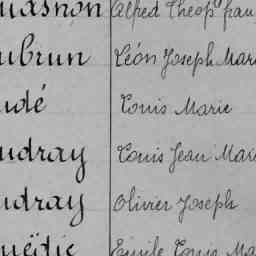 Alfred Théop. fran
ubrun Léon Joseph Mari
udé Louis Marie
udray Louis Jean Mari
udray Olivier Joseph
Emile Louis Ma